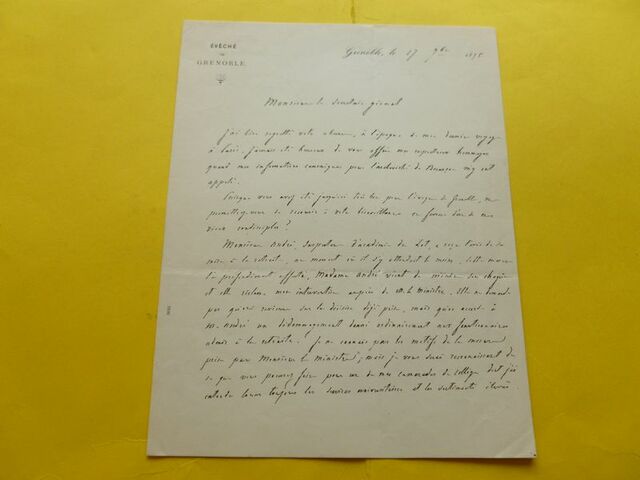 ÉVÊCHÉ
DE
GRENOBLE
Grenoble, le 27 9bre 187
Monsieur le Secrétaire général
J'ai bien regretté votre absence, à l'époque de mon dernier voyage
à Paris. J'aurais été heureux de vous offrir mes respectueux hommages
quand mon information canonique pour l'archevêché de Besançon m'y eut
appelé.
Puisque vous avez été jusqu'ici très bon pour l'évêque de Grenoble, me
permettez-vous de recourir à votre bienveillance en faveur d'un de mes
vieux condisciples?
Monsieur André, Inspecteur d'académie du Lot, a reçu l'avis de sa
mise à la retraite, au moment où il s'y attendait le moins. Cette mesure
l'a profondément affecté, Madame André vient de me
et elle réclame mon intervention auprès de M. le Ministre. Elle ne demande
pas qu'on revienne sur la décision déjà prise, mais qu'on accorde à
M. André un dédommagement donné ordinairement aux fonctionnaires
admis à la retraite. Je ne connais pas les motifs de la mesure
prise par Monsieur le Ministre; mais je vous serai reconnaissant de
ce que vous pourrez faire pour un de mes camarades de collège dont j'ai
entendu louer toujours les services universitaires et les sentiments élevés.